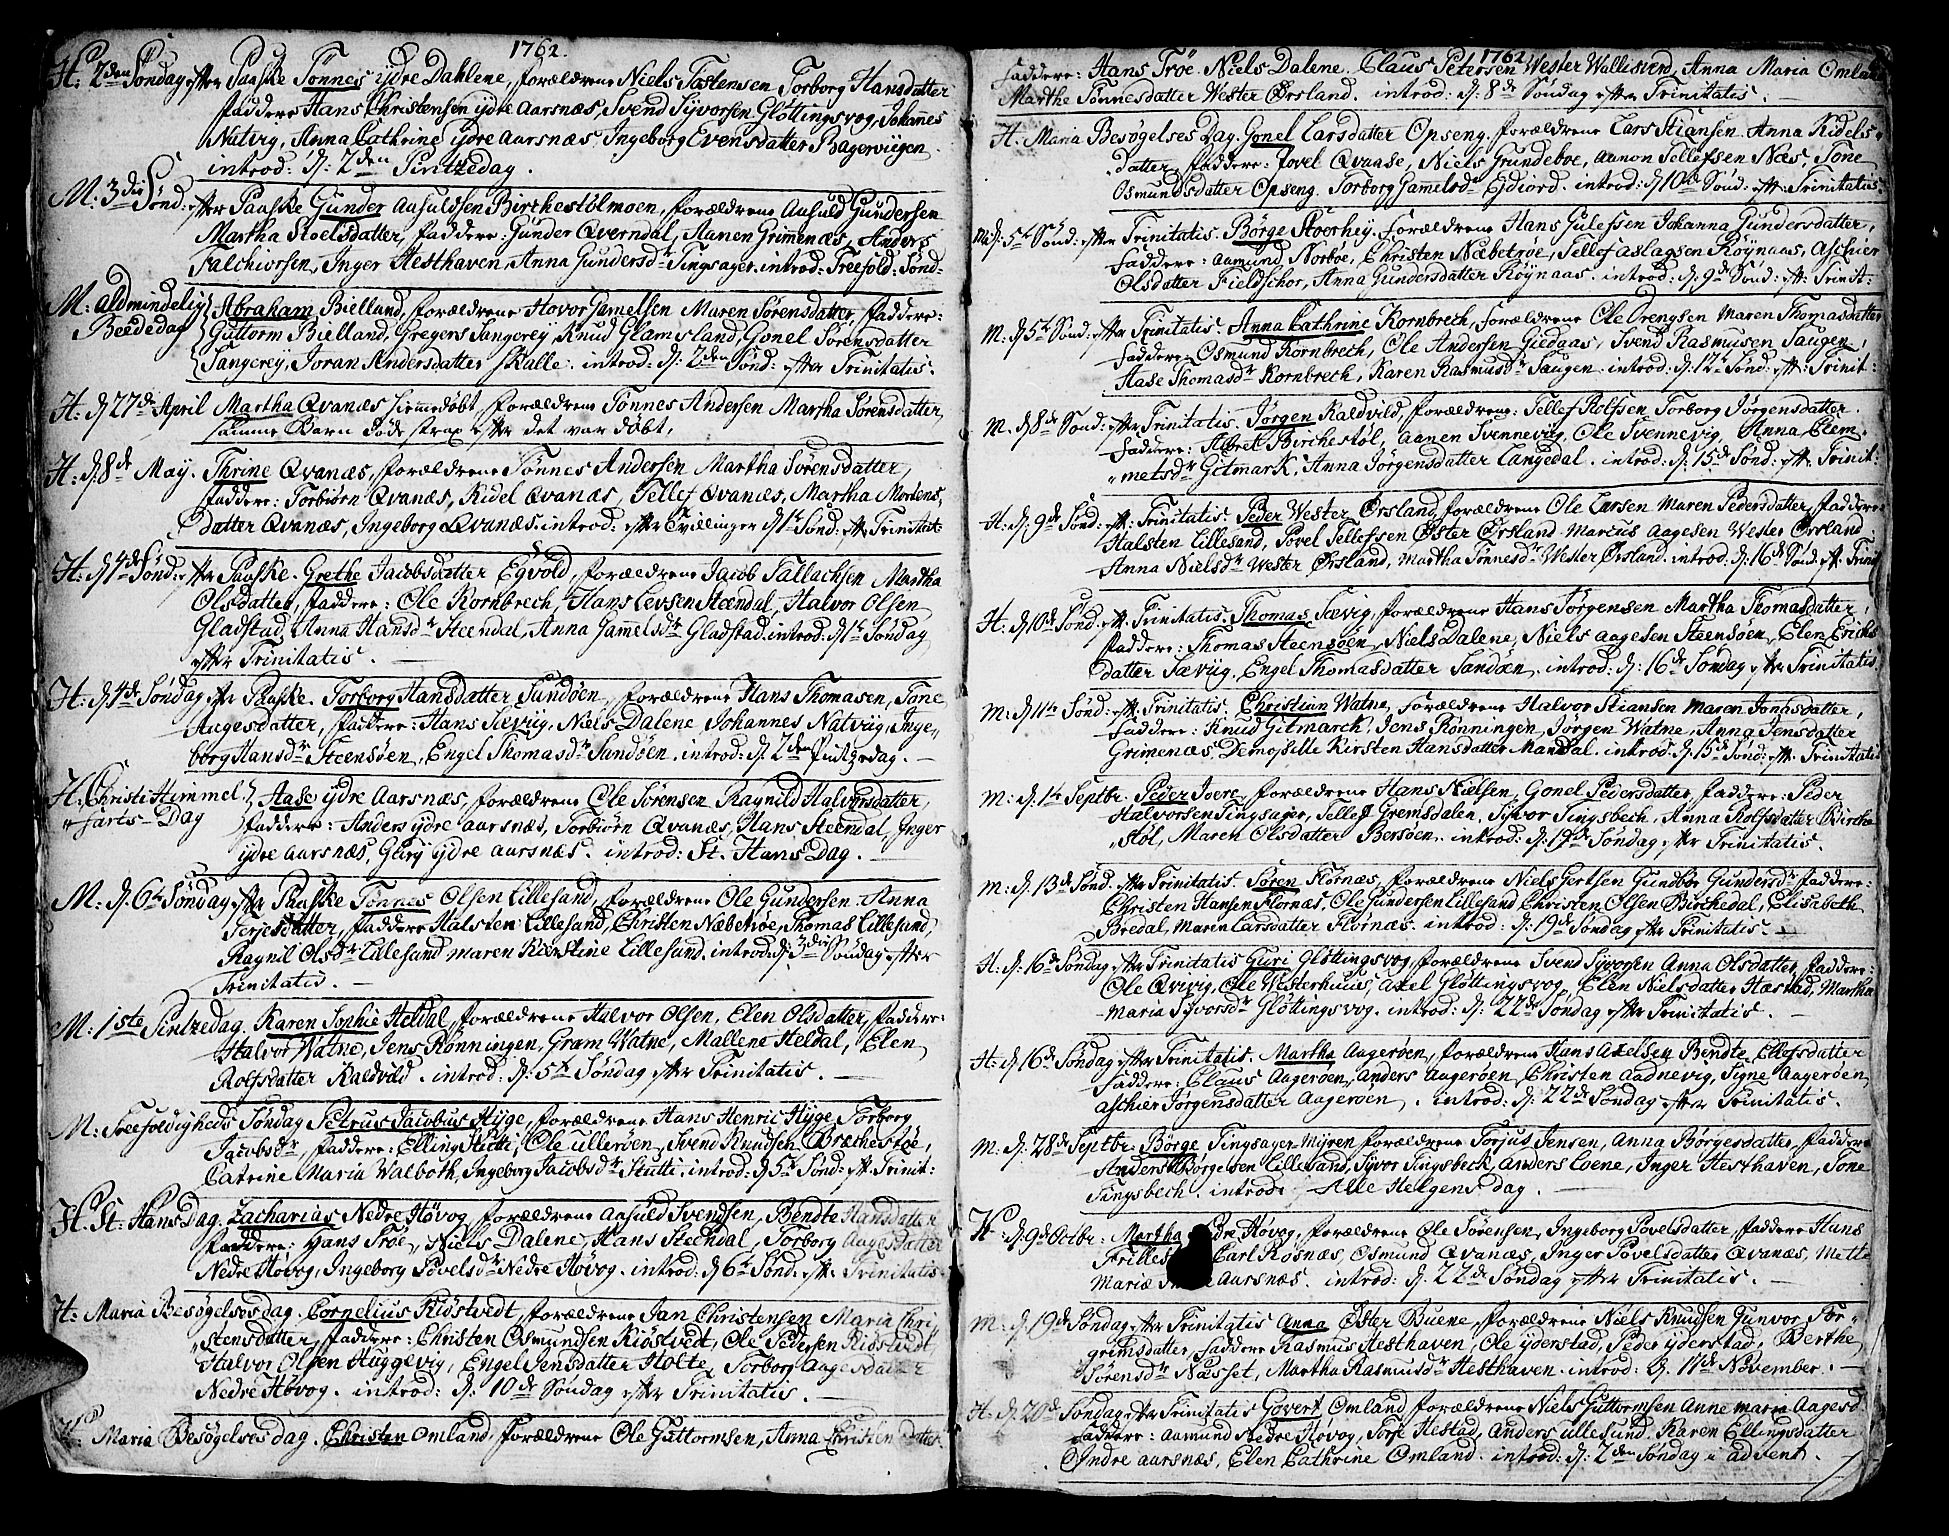 1762.
H: 2den Søndag efter Paaske Tönnes ydre Dahlene, forældrene Niels Tostensen Torborg Hansdatter
faddere Hans Christensen ydre Aarsnæs, Svend Syvorsen Glöttingsvog, Johanes
Natvig, Anna Cathrine ydre Aarsnæs, Ingeborg Evensdatter Bagerviigen
introd: d: 2den Pintzedag.
M: 3die Sönd: efter Paaske Gunder Aasuldsen Birchestölmoen, forældrene Aasuld Gundersen
Martha Noelsdatter, faddere: Gunder Qverndal, Aanen Grimenæs, Anders
Falchiorsen, Inger Hesthaven, Anna Gundersdr Tingsager. introd: Treefold: Sönd:
M: Aldmindelig Abraham Bielland, forældrene Hovor Gamelsen Maren Sörensdatter, faddere:
Beededag Guttorm Bielland, Gregers Sangereÿ, Knud Glamsland, Gonel Sörensdatter
Sangereÿ, Joran Andersdatter Skalle. introd: d: 2den Sönd: efter Trinitatis.
H: d 27de April Martha Qvanæs hiemmedöbt, forældrene Tönnes Andersen Martha Sörensdatter,
samme Barn döde strax efter det var döbt.
H: d: 8de Maÿ. Thrine Qvanæs, forældrene Tönnes Andersen Martha Sörensdatter,
faddere: Torbiörn Qvanæs, Kidel Qvanæs, Tellef Qvanæs, Martha Mortens-
datter Qvanæs, Ingeborg Qvanæs. introd: efter Tvillinger d 1te Sönd: eft: Trinitat:
H: d 4de Sönd: efter Paaske. Grethe Jacobsdatter Egvold, forældrene Jacob Tallachsen Martha
Olsdatter, faddere: Ole Kornbrech, Hans Levsen Steendal, Halvor Olsen
Gladstad, Anna Hansdr Steendal, Anna Gamelsdr Gladstad. introd: d: 1te Söndag
efter Trinitatis.
H: d 4de Söndag eft: Paaske. Torborg Hansdatter Sundöen, forældrene Hans Thomasen, Tone
Aagesdatter, faddere: Hans Sæviig, Niels Dalene Johannes Natviig, Inge-
borg Hansdr Steensöen, Engel Thomasdr Sundöen. introd: d: 2den Pintzedag.
H: Christi Himmel- Aase ydre Aarsnæs, forældrene Ole Sörensen Ragnild Halvorsdatter,
farts-Dag faddere: Anders ydre Aarsnæs, Torbiörn Qvanæs, Hans Steendal, Inger
ydre Aarsnæs, Gurj ydre Aarsnæs. introd: St. Hans Dag.
M: d. 6te Söndag efter Paaske Tönnes Olsen Lillesand, forældrene Ole Gundersen. Anna
Terjesdatter, faddere Halsten Lillesand, Christen Næbetröe, Thomas Lillesand,
Ragnil Olsdr Lillesand Maren Kierstine Lillesand. introd: d: 3die Söndag efter
Trinitatis.
M: 1ste Pintzedag. Karen Sophie Heldal, forældrene Halvor Olsen, Elen Olsdatter, faddere:
Halvor Watne, Jens Rönningen, Gram Watne, Mallene Heldal, Elen
Rolfsdatter Kaldvild. introd: d: 5te Söndag efter Trinitatis.
M: Treefoldigheds Söndag Petrus Jacobus Hÿge, forældrene Hans Henric Hÿge, Torborg
Jacobsdr, faddere: Elling Stutti, Ole Ulleröen, Svend Knudsen Bræchestöe,
Catrine Maria Walboth, Ingeborg Jacobsdr Stutti. introd: d 5te Sönd: eft: Trinit:
H: St: Hans Dag. Zacharias Nedre Hövog, forældrene Aasuld Svendsen, Bendte Hansdatter
faddere: Hans Tröe, Niels Dalene, Hans Steendal, Torborg Aagesdatter
Nedre Hövog, Ingeborg Povelsdr Nedre Hövog. introd: d 6te Sönd: eft: Trinitatis.
H: Maria Besögelsesdag. Cornelius Kiöstvedt, forældrene Jan Christensen Maria Chri-
stensdatter, faddere: Christen Osmundsen Kiöstvedt, Ole Pedersen Kiöstvedt,
Halvor Olsen Huggevig, Engel Jensdatter Holte, Torborg Aagesdatter
Nedre Hövog. introd: d: 10de Söndag efter Trinitatis.
H: Maria Besögelsesdag. Christen Omland, forældrene Ole Guttormsen, Anna Christensdatter
1762
faddere: Hans Tröe. Niels Dalene. Claus Petersen Wester Wallesverd, Anna Maria Omland
Marthe Tönnesdatter Wester Örsland. introd: d: 8de Söndag efter Trinitatis.
H: Maria Besögelses Dag. Gonel Larsdatter Opseng, forældrene Lars Stiansen. Anna Kidels-
datter, faddere: Povel Qvaase, Niels Grundeboe, Aanon Tellefsen Næs, Tone
Osmundsdatter Opseng. Torborg Gamelsdr Ejdiord. introd: d 10de Sönd: eft: Trinitatis.
M: d: 5te Sönd: efter Trinitatis. Börge Stoerheÿ. forældrene Hans Gulefsen Johanna Gundersdatter,
faddere: Aamund Norböe, Christen Næbetröe, Tellef Aslagsen Röÿnaas, Aschier
Olsdatter Fieldschor, Anna Gundersdatter Röÿnaas. introd: d: 9de Sönd: eft: Trinit:
M: d 5te Sönd: efter Trinitatis. Anna Cathrine Kornbrech, forældrene Ole Drengsen Maren Thomasdatter
faddere Osmund Kornbrech, Ole Andersen Giedaas, Svend Rasmusen Saugen,
Aase Thomasdr Kornbrech, Karen Rasmusdr Saugen. introd: d: 12te Sönd: eft: Trinit:
M: d 8de Sönd: efter Trinitatis. Jörgen Kaldvild, forældrene: Tellef Rolfsen Torborg Jörgensdatter.
faddere: Albret Birchestöl, Aanen Svennevig, Ole Svennevig, Anna Clem-
metsdr Gitmark, Anna Jörgensdatter Langedal. introd: d: 15de Sönd: eft: Trinit:
H: d: 9de Sönd: eft: Trinitatis. Peder Wester Örsland, forældrene Ole Larsen Maren Pedersdatter, faddere:
Halsten Lillesand, Povel Tellefsen Öster Örsland Marcus Aagesen Wester Örsland
Anna Nielsdr Wester Örsland, Martha Tönnesdr Wester Örsland. introd: d: 16de Sönd: eft: Trinit
H: d 10de Sönd: eft: Trinitatis. Thomas Sævig, forældrene Hans Jörgensen Martha Thomasdatter,
faddere: Thomas Steensöen, Niels Dalene, Niels Aagesen Steensöen, Elen Erichs-
datter Sæviig, Engel Thomasdatter Sandöen. introd: d: 16de Söndag efter Trinitatis.
M: d 11te Sönd: eft: Trinitatis. Christian Watne, forældrene Halvor Stiansen Maren Jonasdatter,
faddere: Knud Gitmarch, Jens Rönningen, Jörgen Watne, Anna Jensdatter
Grimenæs, Demoselle Kirsten Hansdatter Mandal. introd: d: 15de Sönd: eft: Trinitatis
M: d: 1te Septbr. Peder Ivere, forældrene Hans Nielsen, Gonel Pedersdatter, faddere: Peder
Halvorsen Tingsager, Tellef Gremsdalen, Syvor Tingsbech, Anna Rolfsdatter Birche-
stöl, Maren Olsdatter Bersöen. introd: d: 19de Söndag efter Trinitatis.
M: d: 13de Sönd: efter Trinitatis. Sören Flörnæs, forældrene Niels Gertsen Gundbor Gundersdr faddere:
Christen Hansen Flörnæs, Ole Gundersen Lillesand Christen Olsen Birchedal, Elisabeth
Bredal, Maren Larsdatter Flörnæs. introd: d: 19de Söndag efter Trinitatis.
H: d: 16de Söndag efter Trinitatis Guri Glöttingsvog, forældrene Svend Syvorsen Anna Olsdatter, faddere:
Ole Qvivig, Ole Westerhuus, Axel Glöttingsvog, Elen Nielsdatter Hæstad, Martha
Maria Syvorsdr Glöttingsvog. introd: d: 22de Söndag efter Trinitatis.
H: d 16de Söndag efter Trinitatis. Martha Aageröen, forældrene Hans Axelsen Bendte Ellefsdatter
faddere: Claus Aageröen, Anders Aageröen, Christen Aadnevig, Signe Aageröen,
Aschier Jörgensdatter Aageröen. introd: d: 22de Söndag efter Trinitatis.
M: d: 28de Septbr: Börge Tingsager-Mÿren forældrene Torjus Jensen, Anna Börgesdatter, faddere
Anders Börgesen Lillesand, Syvor Tingsbeck, Anders Loene, Inger Hesthaven, Tone
Tingsbech. introd: Alle Helgens dag.
H: d: 9de Octbr. Martha dre Hövog, forældrene Ole Sörensen, Ingeborg Povelsdatter, faddere Hans
Carl Kosnæs, Osmund Qvanæs, Inger Povelsdatter Qvanæs, Mette
Mariæ Aarsnæs. introd: d: 22de Söndag efter Trinitatis.
M: d: 19de Söndag efter Trinitatis Anna Öster Buene, forældrene Niels Knudsen Gunvor Tor-
grimsdatter, faddere Rasmus Hesthaven, Ole Yderstad, Peder Yderstad, Berthe
Sörensdr Næsset, Martha Rasmusdr Hesthaven. introd: d: 11de November.
H: d: 20de Söndag efter Trinitatis Govert Omland forældrene Niels Guttormsen Anne Maria Aagesd
faddere: Aamund Nedre Hövog, Torje Hestad, Anders Ullesund. Karen Ellingsdatter
Indre Aarsnæs, Elen Cathrine Omland. introd: d: 2den Söndag i Advent.